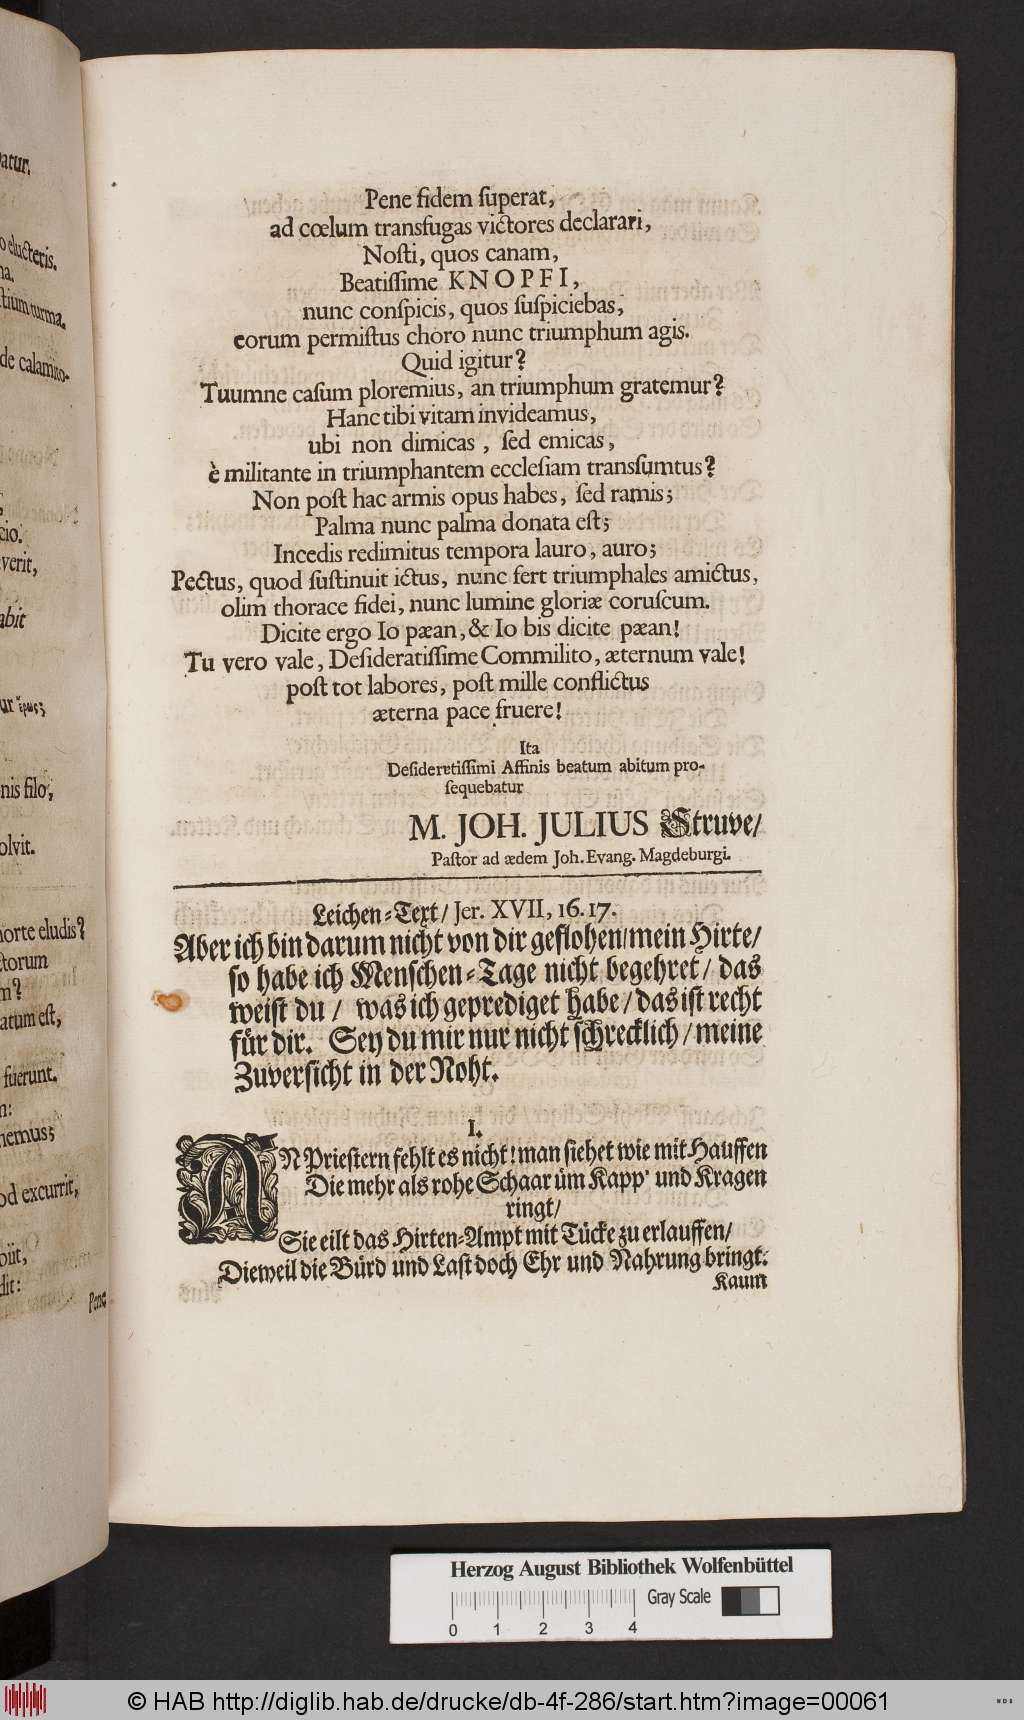 atur.
o elucteris.
na.
tium turma.
de calamito-
cio.
verit,
abit
nis filo,
olvit.
morte eludis?
ctorum
m?
atum est,
fuerunt.
n:
nemus;
od excurrit,
piit,
dit:
Pene
Pene fidem ſuperat,
ad cœlum transfugas victores declarari,
Noſti, quos canam,
Beatiſſime KNOPFI,
nunc conſpicis, quos ſuſpiciebas,
eorum permiſtus choro nunc triumphum agis.
Quid igitur?
Tuumne caſum ploremius, an triumphum gratemur?
Hanc tibi vitam invideamus,
ubi non dimicas, ſed emicas,
è militante in triumphantem eccleſiam transſumtus?
Non poſt hac armis opus habes, ſed ramis;
Palma nunc palma donata eſt;
Incedis redimitus tempora lauro, auro;
Pectus, quod ſuſtinuit ictus, nunc fert triumphales amictus,
olim thorace fidei, nunc lumine gloriæ coruſcum.
Dicite ergo Io pæan, & Io bis dicite pæan!
Tu vero vale, Deſideratiſſime Commilito, æternum vale!
poſt tot labores, poſt mille conflictus
æterna pace fruere!
Ita
Deſideretiſſimi Affinis beatum abitum pro-
ſequebatur
M. JOH. JULIUS Struve/
Paſtor ad ædem Joh. Evang. Magdeburgi.
Leichen-Text/ Jer. XVII, 16. 17.
Aber ich bin darum nicht von dir geflohen/mein Hirte/
ſo habe ich Menſchen-Tage nicht begehret/ das
weiſt du/ was ich geprediget habe/ das iſt recht
für dir. Sey du mir nur nicht ſchrecklich/ meine
Zuverſicht in der Noht.
I.
AN Prieſtern fehlt es nicht! man ſiehet wie mit Hauffen
Die mehr als rohe Schaar üm Kapp' und Kragen
ringt/
Sie eilt das Hirten-Ampt mit Tücke zu erlauffen/
Dieweil die Bürd und Laſt doch Ehr und Nahrung bringt.
Kaum
Herzog August Bibliothek Wolfenbüttel
Gray Scale
0 1 2 3 4
© HAB http://diglib.hab.de/drucke/db-4f-286/start.htm?image=00061